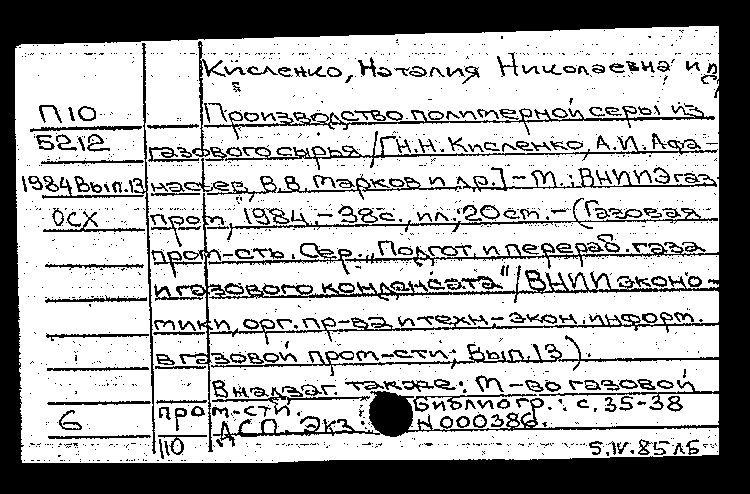 Кисленко, Наталия Николаевна и
П10 Производство полимерной серы из
5212 газового сырья /[Н.Н. Кисленко, А.И. Афа-
1984 Вып.13 насьев, В.В. Марков и др.] - М.: ВНИИЭгаз-
ОСХ пром, 1984. - 38с., ил.; 20 см. - (Газовая
пром-сть. Сер. „Подгот. и перераб. газа
и газового конденсата" / ВНИИ эконо-
мики, орг. пр-ва и техн.-экон. информ.
в газовой пром-сти; Вып. 13).
В надзаг. также: М-во газовой
6 пром-сти. Библиогр.: с. 35-38
ДСП. Экз. N 000386.
110 5.IV.85 лб